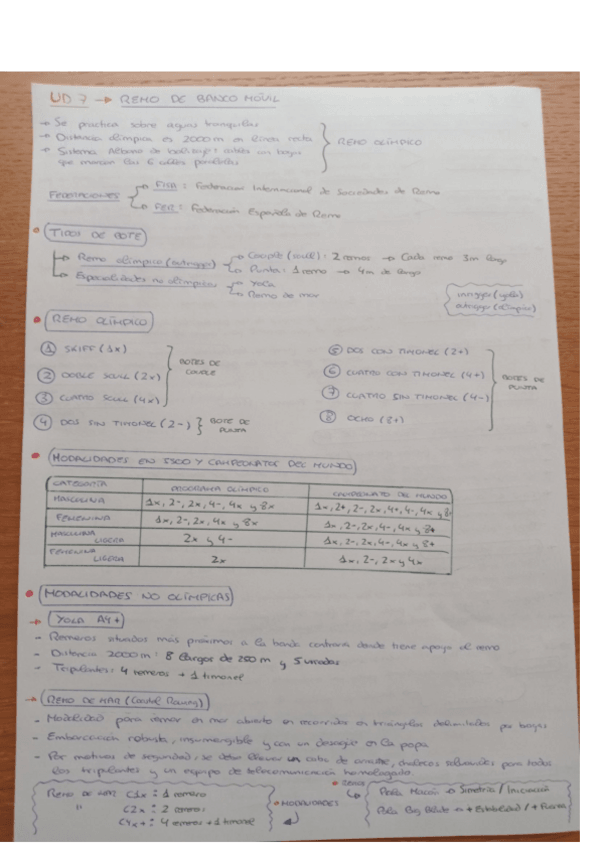 UD 7 → REMO DE BANCO MÓVIL
→ Se practica sobre aguas tranquilas
→ Distancia olímpica es 2000 m en línea recta
→ Sistema Albano de balizaje: cables con boyas
que marcan las 6 calles paralelas
REMO OLÍMPICO
FEDERACIONES
→ FISA: Federación Internacional de Sociedades de Remo
→ FER: Federación Española de Remo
• TIPOS DE BOTE
→ Remo olímpico (outrigger)
→ Couple (scull): 2 remos → Cada remo 3m largo
→ Punta: 1 remo → 4m de largo
→ Especialidades no olímpicas
→ Yola
→ Remo de mar
inrigger (yola)
outrigger (olímpico)
• REMO OLÍMPICO
1 SKIFF (1x)
2 DOBLE SCULL (2x)
3 CUATRO SCULL (4x)
BOTES DE
COUPLE
4 DOS SIN TIMONEL (2-) } BOTE DE
PUNTA
5 DOS CON TIMONEL (2+)
6 CUATRO CON TIMONEL (4+)
7 CUATRO SIN TIMONEL (4-)
8 OCHO (8+)
BOTES DE
PUNTA
• MODALIDADES EN JJOO Y CAMPEONATOS DEL MUNDO
CATEGORÍA PROGRAMA OLÍMPICO CAMPEONATO DEL MUNDO
MASCULINA 1x, 2-, 2x, 4-, 4x y 8x 1x, 2+, 2-, 2x, 4+, 4-, 4x y 8+
FEMENINA 1x, 2-, 2x, 4x y 8x 1x, 2-, 2x, 4-, 4x y 8+
MASCULINA LIGERA 2x y 4- 1x, 2-, 2x, 4-, 4x y 8+
FEMENINA LIGERA 2x 1x, 2-, 2x y 4x
• MODALIDADES NO OLÍMPICAS
→ YOLA A4+
- Remeros situados más próximos a la banda contraria donde tiene apoyo el remo
- Distancia 2000m: 8 largos de 250 m y 5 viradas
- Tripulantes: 4 remeros + 1 timonel
→ REMO DE MAR (Coastal Rowing)
- Modalidad para remar en mar abierto en recorridos en triángulos delimitados por boyas
- Embarcación robusta, insumergible y con un desagüe en la popa
- Por motivos de seguridad, se debe llevar un cabo de arrastre, chalecos salvavidas para todos
los tripulantes y un equipo de telecomunicación homologado.
REMO DE MAR C1x: 1 remero
" C2x: 2 remeros
C4x+: 4 remeros + 1 timonel
• MODALIDADES
→ Pala Macon → Simetría / Iniciación
Pala Big Blade → + Estabilidad / + Fuerza